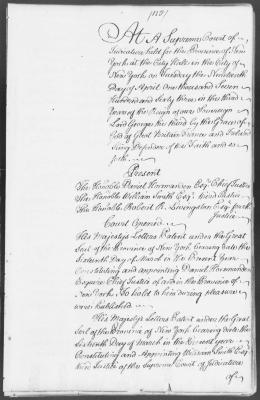 At A Supream Court of
Judicature held for the Province of New
York at the City Hall in the City of
New York on Tuesday the Nineteenth
Day of April One thousand Seven
Hundred and Sixty three in the third
Year of the Reign of our Sovereign
Lord George the third by the Grace of
God of Great Britain France and Ireland
King Defender of the Faith and so
forth
Present
The Honoble Daniel Horsmanden Esqr. Chief Justice
The Honoble William Smith Esqr. third Justice
The Honoble Robert R. Livingston Esqr. fourth
Justice
Court Opened
His Majestys Letters Patent under the Great
Seal of the Province of New York bearing date the
Sixteenth Day of March in the Present Year
Constituting and appointing Daniel Horsmanden
Esquire Chief Justice of and in the Province of
New York To hold to him during pleasure
were published
His Majestys Letters Patent under the Great
Seal of the Province of New York bearing date the
Sixteenth Day of March in the Present year
Constituting and Appointing William Smith Esqr.
third Justice of the Supreme Court of Judicature
of